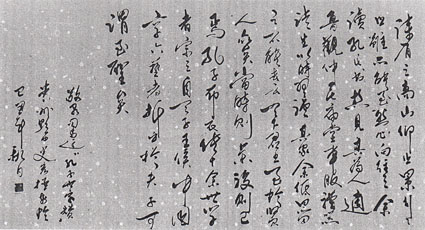 詩有之高山仰止景行行
止雖不能至然心向往之余
讀孔氏書想見其為人適
魯觀仲尼廟堂車服禮器
諸生以時習禮其家余低回留
之不能去云天下君王至於賢
人眾矣當時則榮沒則已
焉孔子布衣傳十餘世學
者宗之自天子王侯中國
言六藝者折中於夫子可
謂至聖矣
孔子世家贊